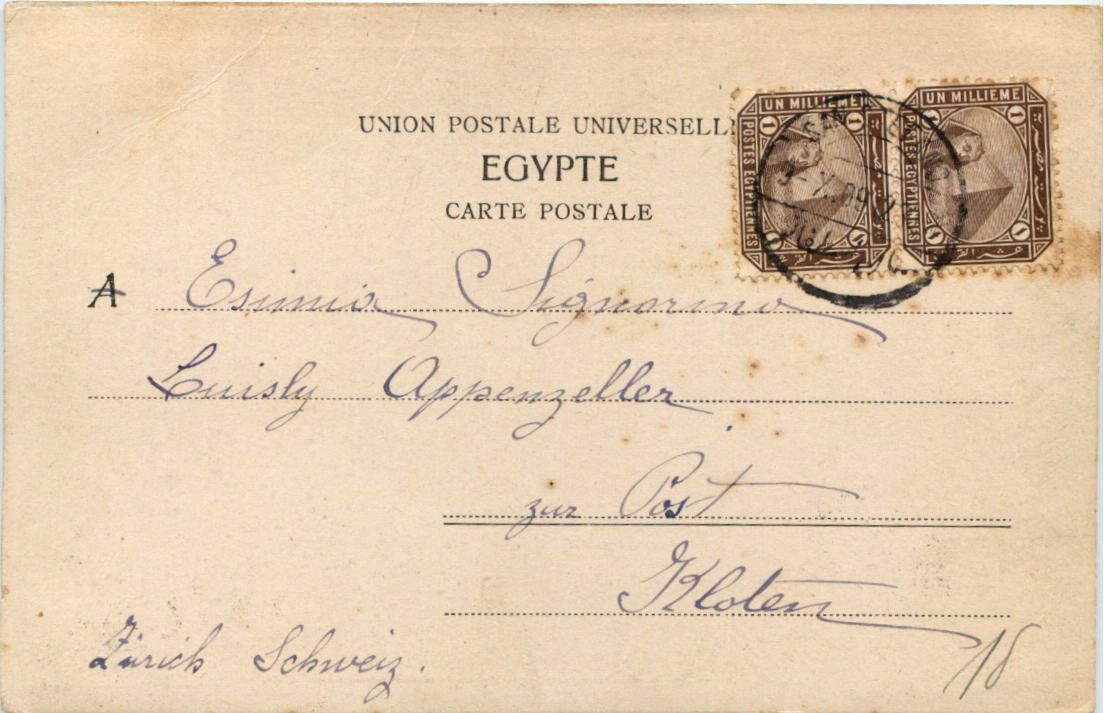 UNION POSTALE UNIVERSELL
EGYPTE
CARTE POSTALE
UN MILLIEME
POSTES EGYPTIENNES
1 1
1 1
UN MILLIEME
POSTES EGYPTIENNES
1 1
1 1
A Esimia Signorina
Luisly Appenzeller
zur Post
Kloten
Zürich Schweiz.